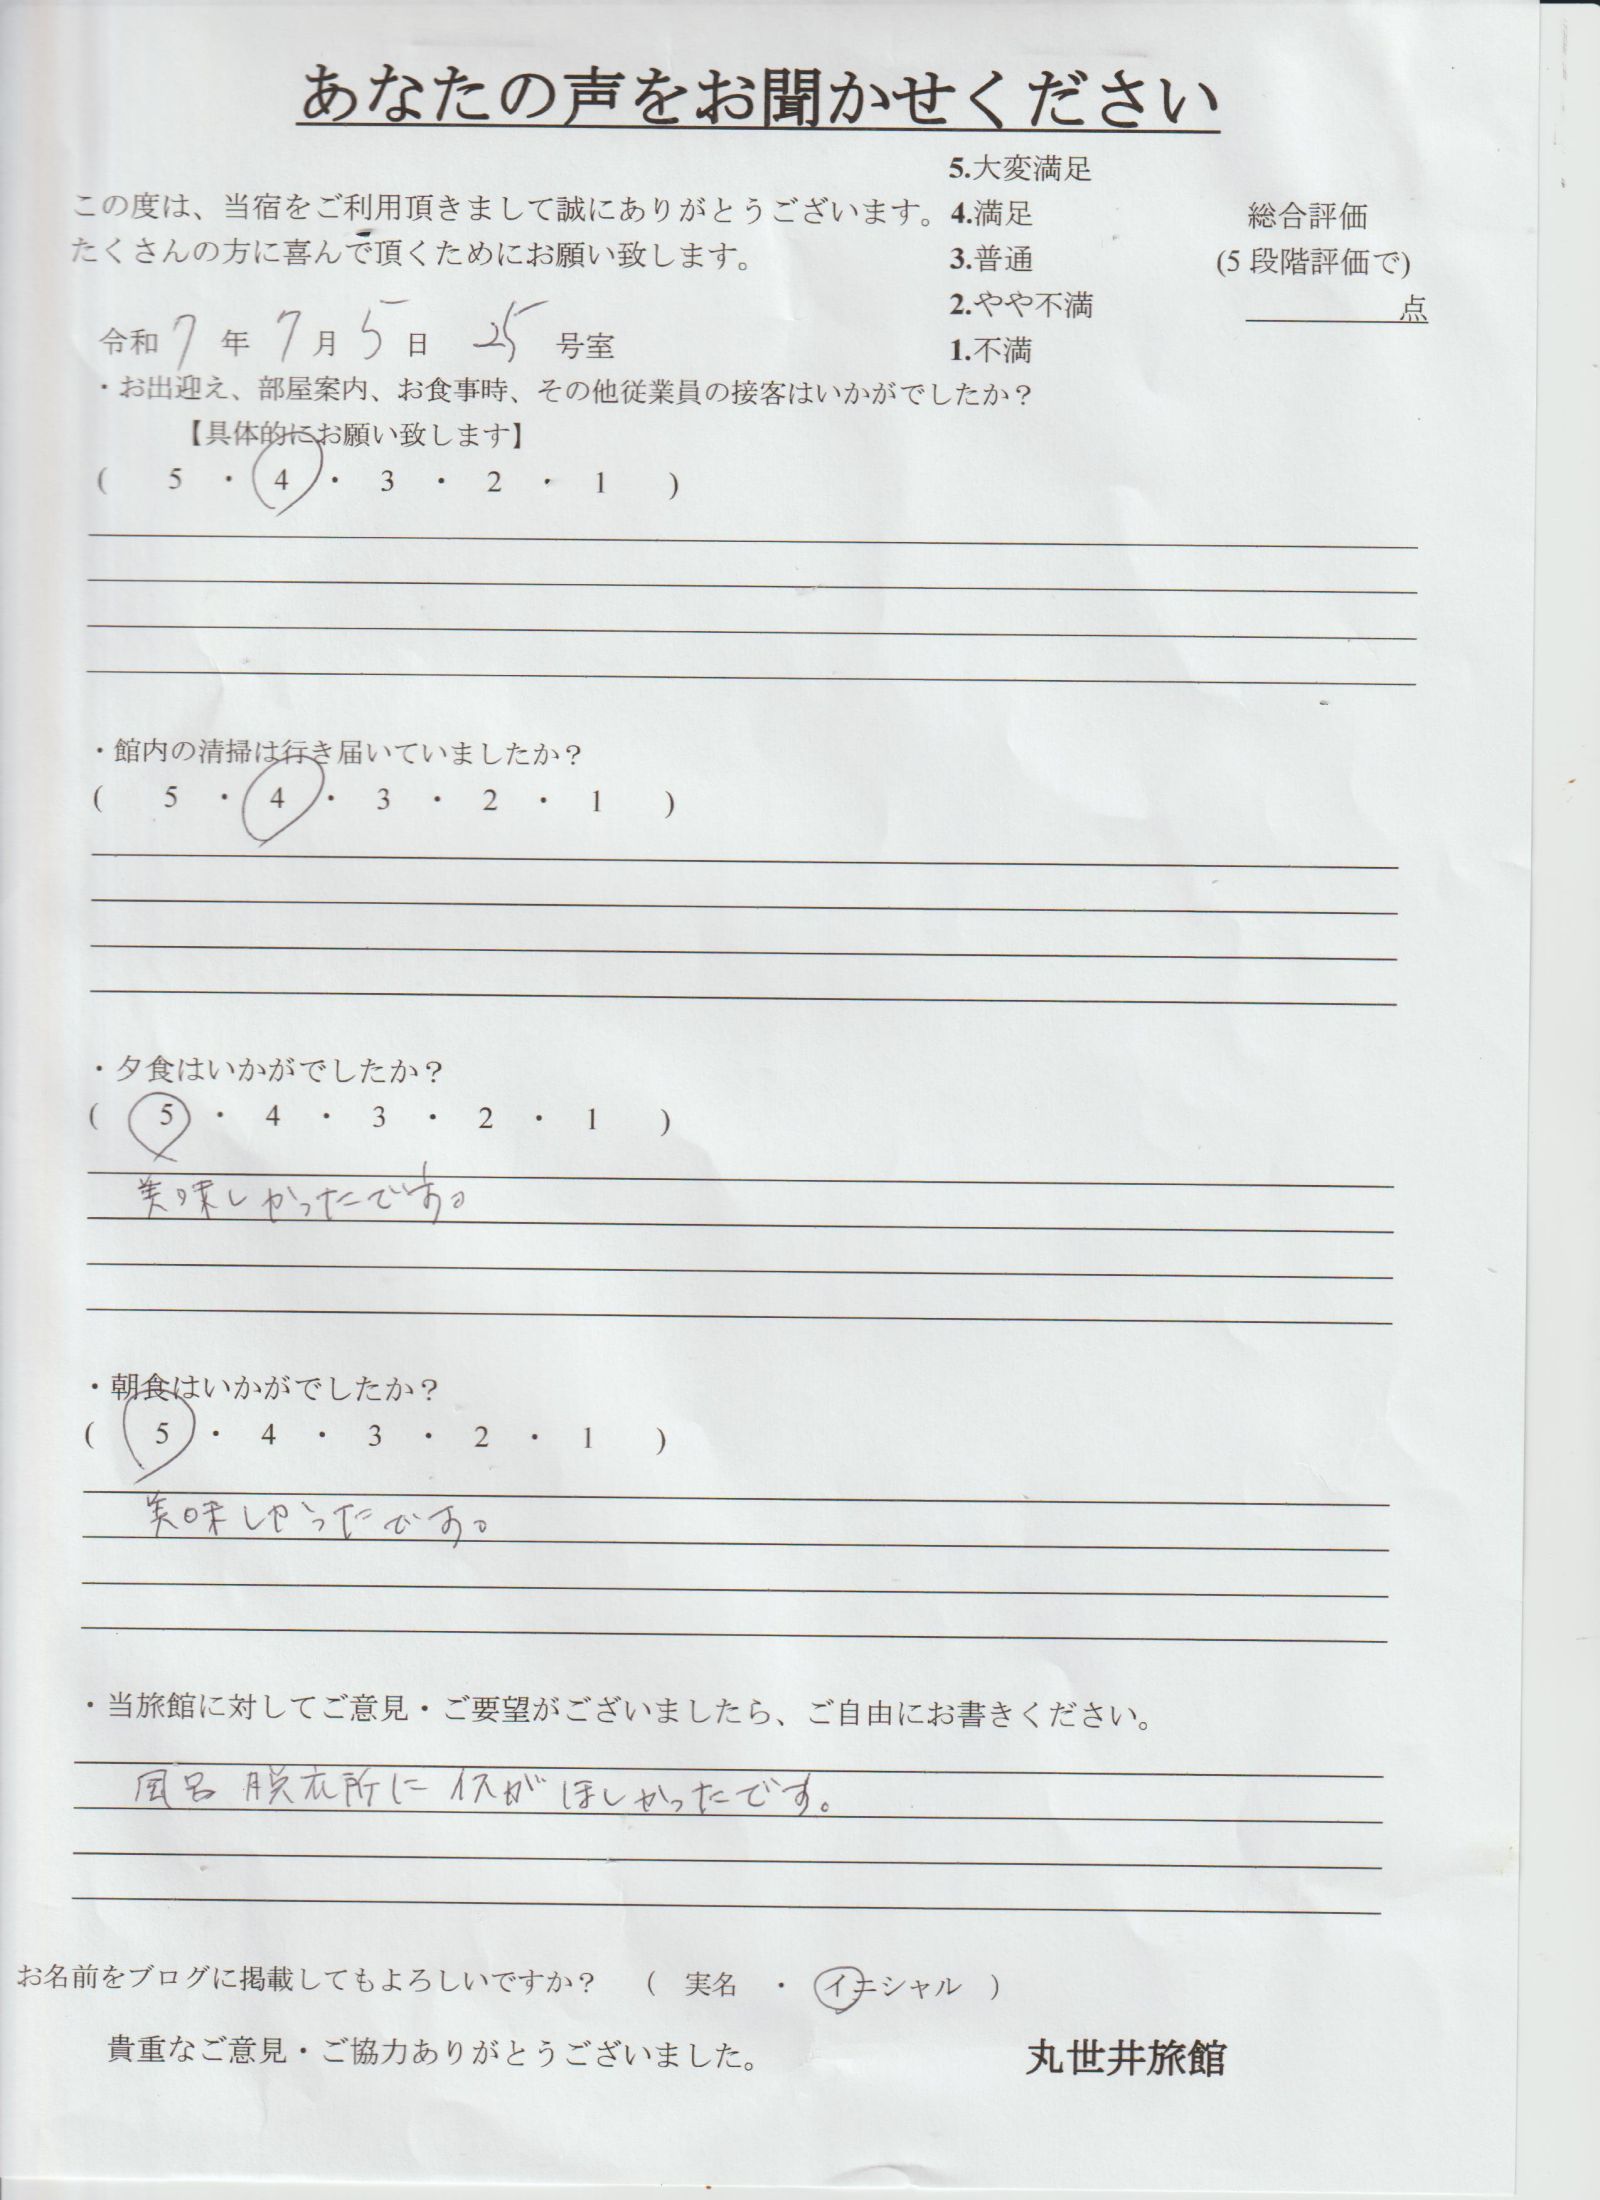 あなたの声をお聞かせください
この度は、当宿をご利用頂きまして誠にありがとうございます。
たくさんの方に喜んで頂くためにお願い致します。
5.大変満足
4.満足
3.普通
2.やや不満
1.不満
総合評価
(5段階評価で)
点
令和7年7月5日 25号室
・お出迎え、部屋案内、お食事時、その他従業員の接客はいかがでしたか?
【具体的にお願い致します】
( 5 ・ 4 ・ 3 ・ 2 ・ 1 )
・館内の清掃は行き届いていましたか?
( 5 ・ 4 ・ 3 ・ 2 ・ 1 )
・夕食はいかがでしたか?
( 5 ・ 4 ・ 3 ・ 2 ・ 1 )
美味しかったです。
・朝食はいかがでしたか?
( 5 ・ 4 ・ 3 ・ 2 ・ 1 )
美味しかったです。
・当旅館に対してご意見・ご要望がございましたら、ご自由にお書きください。
風呂 脱衣所に イスが ほしかったです。
お名前をブログに掲載してもよろしいですか? ( 実名 ・ イニシャル )
貴重なご意見・ご協力ありがとうございました。
丸世井旅館